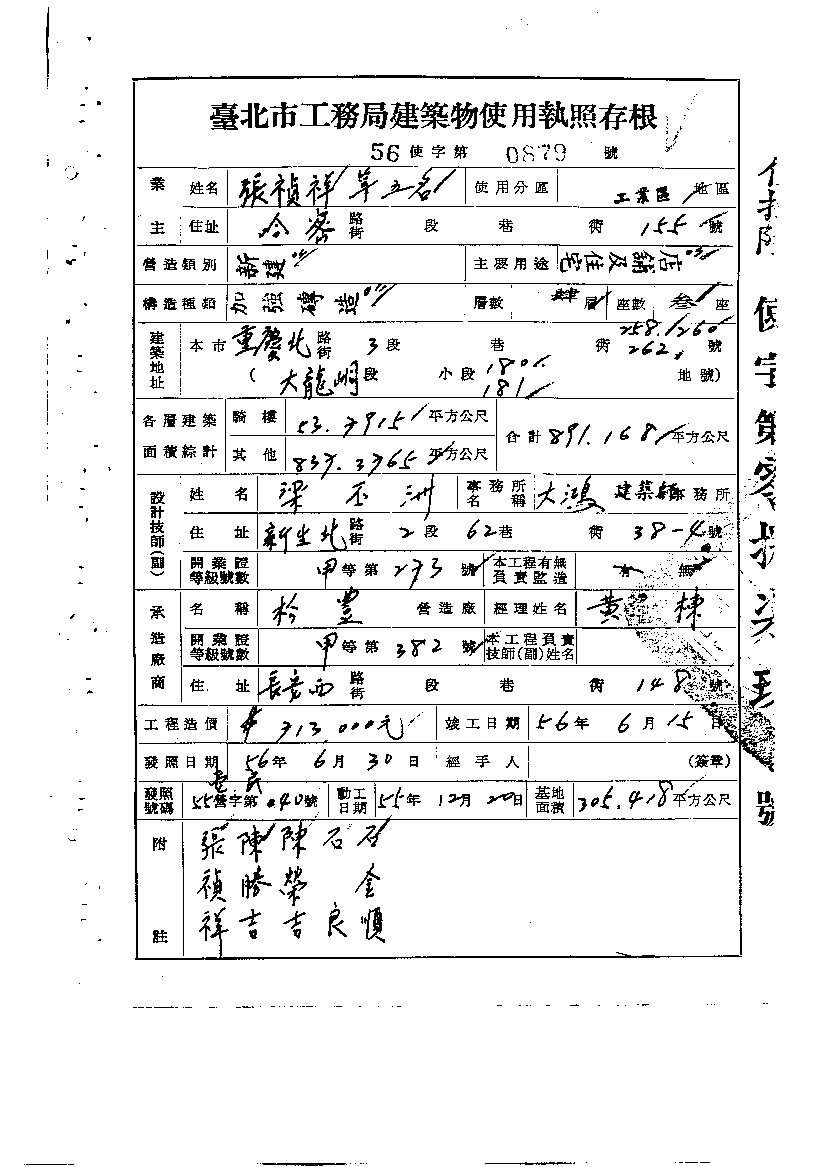 臺北市工務局建築物使用執照存根
56使字第 0879 號
業主 姓名 張禎祥等五名 使用分區 工業區 地區
住址 哈密 路街 段 巷 衖 155 號
營造類別 新建 主要用途 店舖及住宅
構造種類 加強磚造 層數 肆層 座數 叁座
建築地址 本市 重慶北 路街 3段 巷 衖 258.260 262. 號
(大龍峒段 小段 180. 181 地號)
各層建築面積綜計 騎樓 53.7915 平方公尺 合計 891.168 平方公尺
其他 837.3765 平方公尺
設計技師(副) 姓名 梁丕洲 事務所名稱 大鴻建築師事務所
住址 新生北 路街 2段 62巷 衖 38-4號
開業證等級號數 甲等第273號 本工程有無負責監造 有 無
承造廠商 名稱 松豐 營造廠 經理姓名 黃 棟
開業證等級號數 甲等第382號 本工程負責技師(副)姓名
住址 長安西 路街 段 巷 衖 148號
工程造價 $713,000元 竣工日期 56年6月15日
發照日期 56年6月30日 經手人 (簽章)
發照號碼 55營字第040號 動工日期 55年12月20日 基地面積 305.418平方公尺
附註
張禎祥
陳勝吉
陳榮吉
石 良
石金順
使字第
號